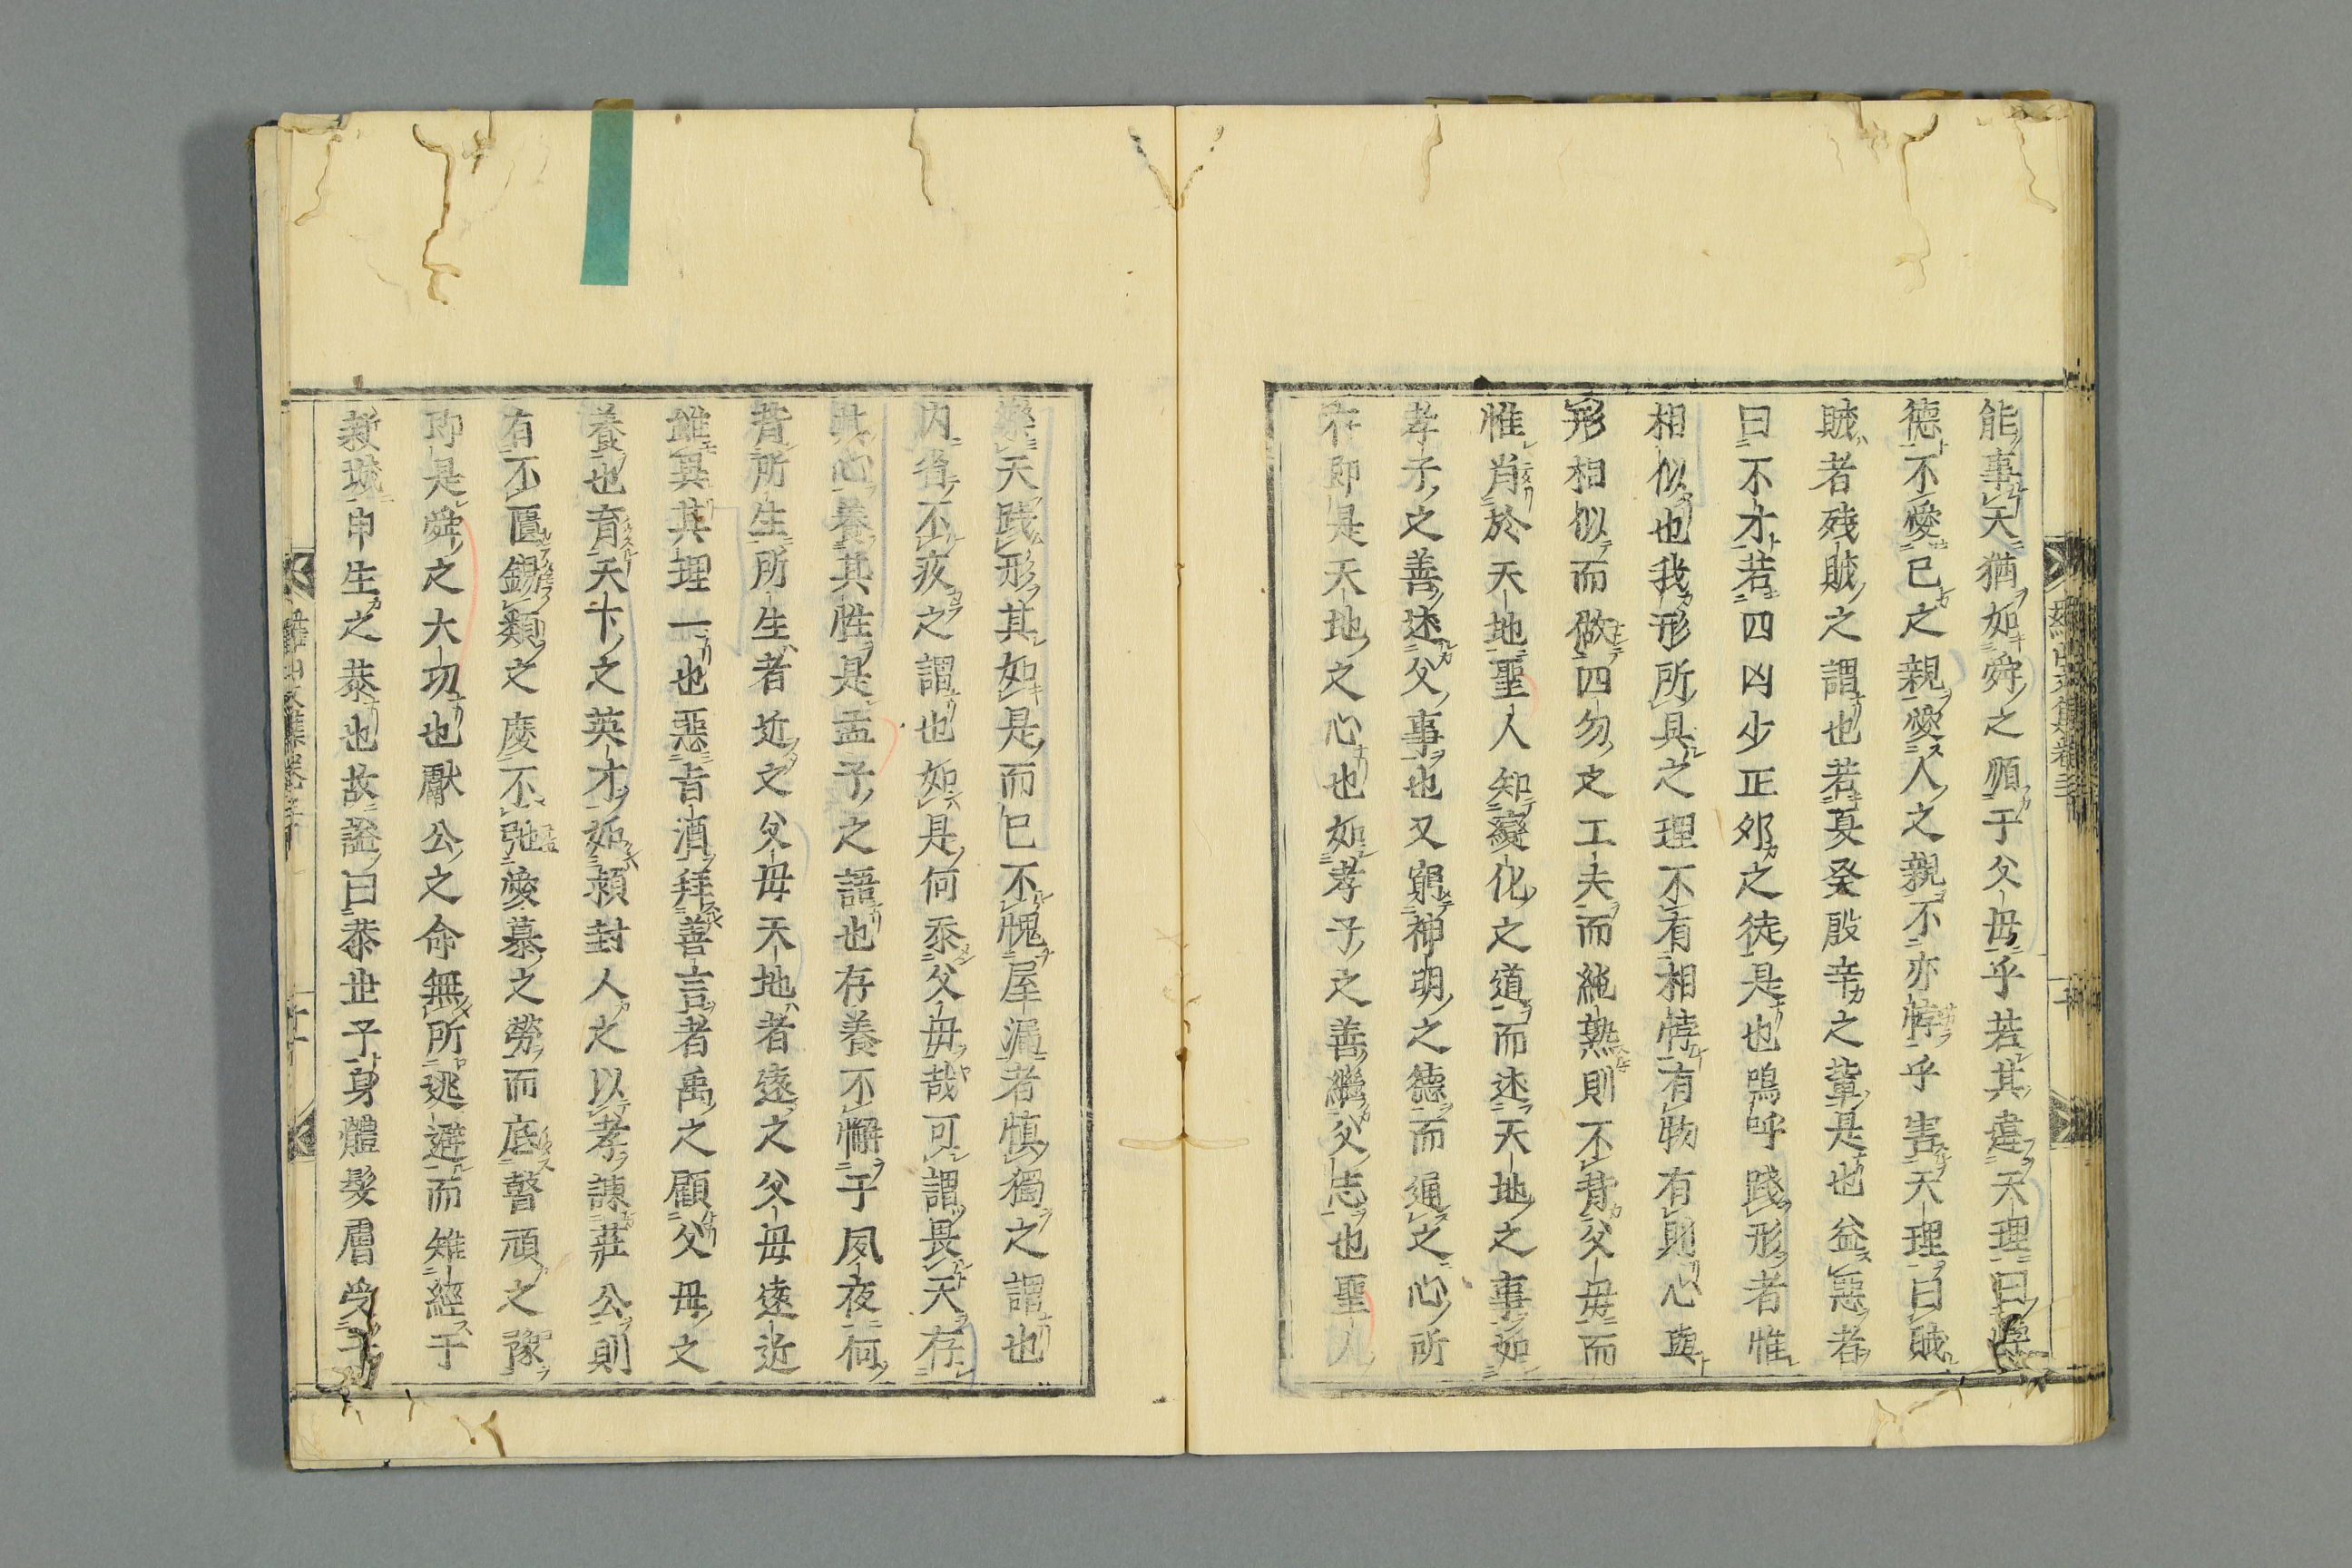 能事天猶如舜之順于父母乎若其違天理曰悖
德不愛己之親愛人之親不亦悖乎害天理曰賊
賊者殘賊之謂也若夏癸殷辛之輩是也益惡者
曰不才若四凶少正邜之徒是也嗚呼踐形者惟
相似也我形所具之理不有相悖有物有則心與
形相似而做四勿之工夫而純熟則不背父母而
惟肖於天地聖人知變化之道而述天地之事如
孝子之善述父事也又窮神明之德而通之心所
在即是天地之心也如孝子之善繼父志也聖人
樂天踐形其如是而已不愧屋漏者慎獨之謂也
内省不疚之謂也如是何忝父母哉可謂畏天存
其心養其性是孟子之語也存養不懈于夙夜何
背所生所生者近之父母天地者遠之父母遠近
雖異其理一也惡旨酒拜善言者禹之顧父母之
養也育天下之英才如潁封人之以孝諫莊公則
有不匱錫類之慶不弛愛慕之勞而底瞽頑之豫
即是舜之大功也獻公之命無所逃避而雉經于
新城申生之恭也故諡曰恭世子身體髮膚受于
羅山文集卷三十